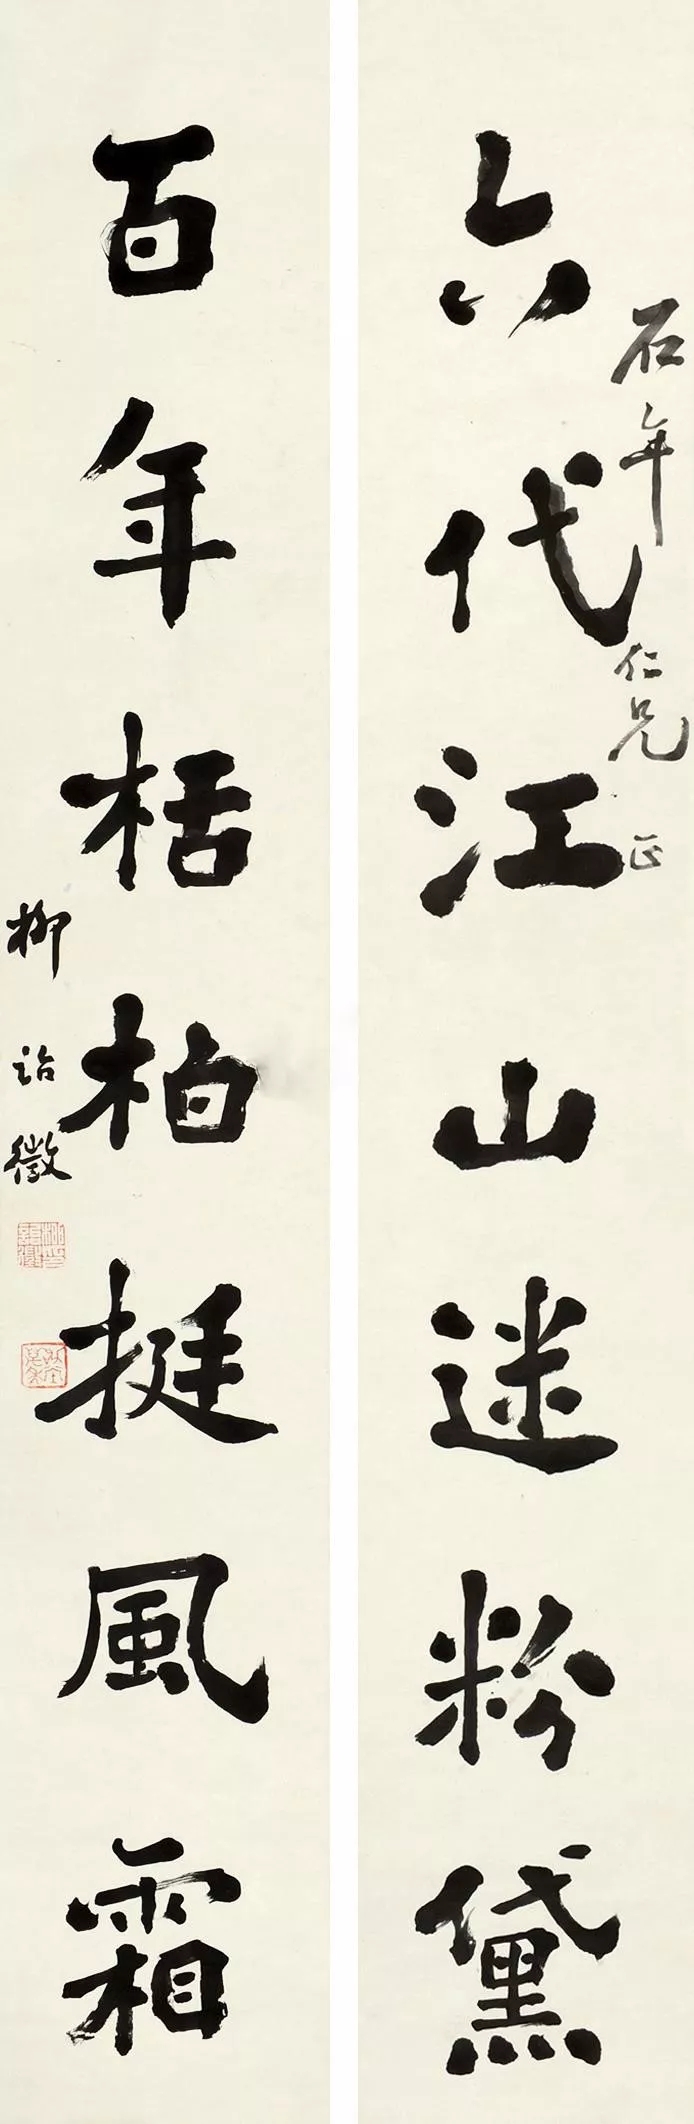 六代江山迷粉黛
石年仁兄正
百年栝柏挺風霜
柳詒徵